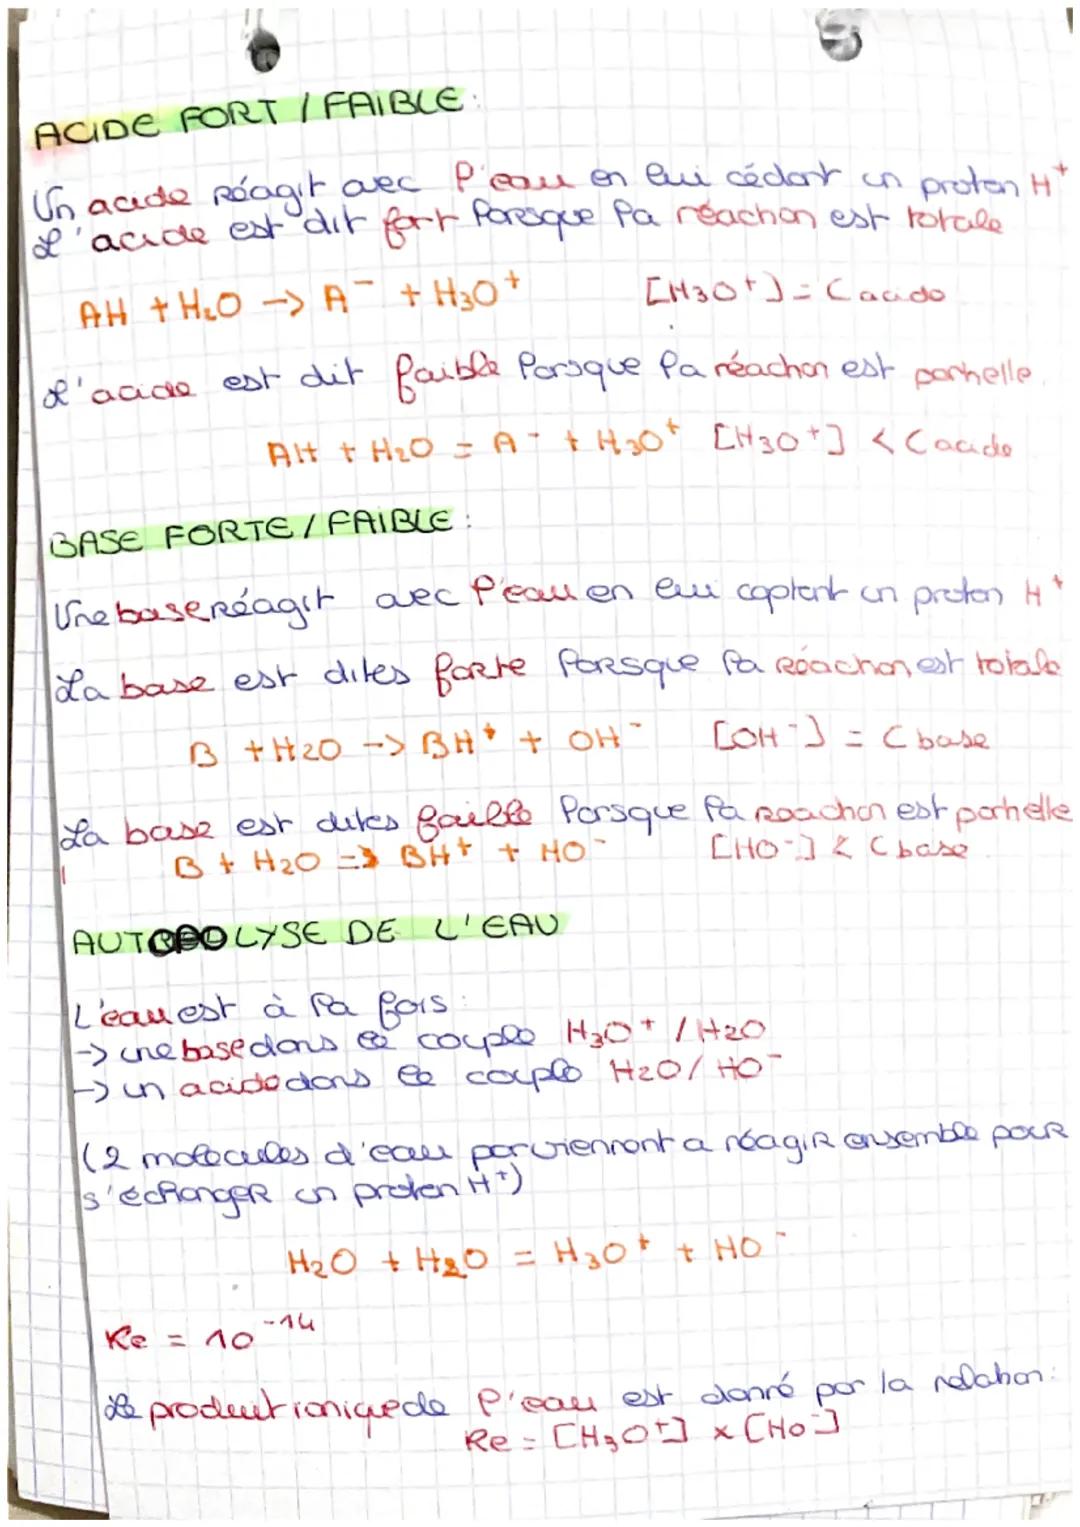 ACIDE FORT / FAIBLE:
Un acide Réagit avec l'eau en lui cédant un proton H⁺
L'acide est dit fort lorsque la réaction est totale
AH + H₂O → A⁻ + H₃O⁺ [H3O⁺] = C acide
L'acide est dit faible lorsque la réaction est partielle.
AH + H₂O = A⁻ + H₃O⁺ [H3O⁺] < C acide
BASE FORTE / FAIBLE:
Une base Réagit avec l'eau en lui captant un proton H⁺
La base est dites forte lorsque la Réaction est totale
B + H2O → BH⁺ + OH⁻ [OH⁻] = C base
La base est dites faible lorsque la réaction est partielle
B + H₂O => BH⁺ + HO⁻ [HO⁻] < C base
AUTOPOLYSE DE L'EAU
L'eau est à la fois:
→ une base dans le couple H₃O⁺ / H2O
→ un acide dans le couple H2O / HO⁻
(2 molécules d'eau parviennent a réagiR ensemble pouR
s'échangeR un proton H⁺)
H₂O + H₂O = H₃O⁺ + HO⁻
Ke = 10⁻¹⁴
Le produit ionique de l'eau est donné par la relation:
Ke = [H₃O⁺] x [HO⁻]